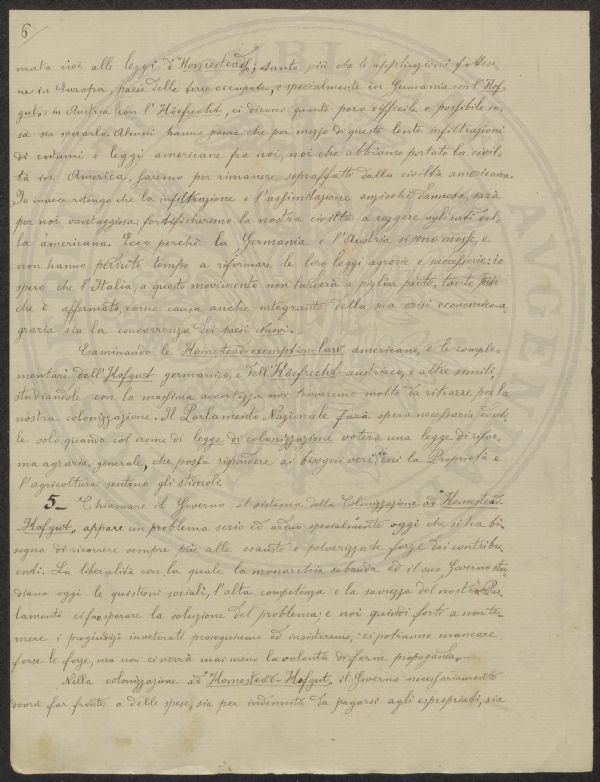 6
mata cioè alle leggi d'Homestead; tanto più che le applicazioni fattene
ne in Europa, paese delle terre occupate, e specialmente in Germania con l'Hof-
gut, in Austria con l'Höefrecht, ci dicono quanto poco difficile e possibile co-
sa sia sperarlo. Alcuni hanno paura che per mezzo di queste lente infiltrazioni
di costumi e leggi americane fra noi, noi che abbiamo portato la civil-
tà in America, saremo per rimanere sopraffatti dalla civiltà americana.
Io invece ritengo che la infiltrazione e l'assimilazione anzichè dannosa, sarà
per noi vantaggiosa: fortificheremo la nostra civiltà a reggere agli urti del-
la americana. Ecco perchè la Germania e l'Austria si sono mosse, e
non hanno perduto tempo a riformare le loro leggi agrarie e successorie; io
spero che l'Italia, a questo movimento non tarderà a pigliar parte, tanto più
che è affermato, come causa anche integrante della sua crisi economico-a-
graria sia la concorrenza dei paesi nuovi.
Esaminando le Homestead-exemption-law americane, e le comple-
mentari dell'Hofgut germanico, e dell'Höefrecht austriaco, e altre simili,
studiandole con la massima accortezza noi troveremo molto da ritrarre per la
nostra colonizzazione. Il Parlamento Nazionale farà opera necessaria ed uti-
le solo quando col nome di legge di colonizzazione voterà una legge di rifor-
ma agraria generale, che possa rispondere ai bisogni veri di cui la Proprietà e
l'agricoltura sentono gli stimoli.
5- Chiamare il Governo al sistema della Colonizzazione ad "Homestead-
-Hofgut" appare un problema serio ed arduo specialmente oggi che si ha bi-
sogno di ricorrere sempre più alle esauste e polverizzate forze dei contribu-
enti. La liberalità con la quale la monarchia sabauda ed il suo Governo stu-
diano oggi le quistioni sociali, l'alta competenza e la saviezza del nostro Par-
lamento ci fan sperare la soluzione del problema; e noi quindi forti a non te-
mere i pregiudizi inveterati proseguiremo ed insisteremo; ci potranno mancare
forse le forze, ma non ci verrà mai meno la volontà di farne propaganda.-
Nella colonizzazione ad "Homestead-Hofgut" il Governo necessariamente
dovrà far fronte a delle spese, sia per indennità da pagarsi agli espropriati, sia